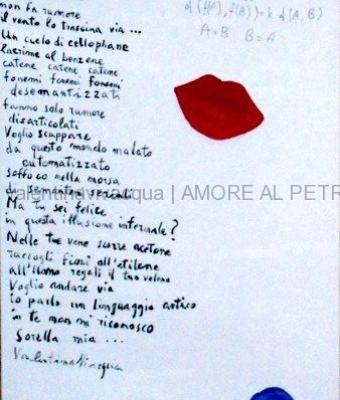 non fa rumore
il vento lo trascina via ...
Un cielo di cellophane
lacrime al benzene
catene catene catene
fonemi fonemi fonemi
desemantizzati
fanno solo rumore
disarticolati
Voglio scappare
da questo mondo malato
automatizzato
soffoco nella morsa
di
Ma tu sei felice
in questa illusione infernale?
Nelle tue vene scorre acetone
raccogli fiori all'etilene
regali il tuo veleno
Voglio andare via
io parlo un linguaggio antico
in te non mi riconosco
Sorella mia ...
Valentina Vinacqua
d(f(A), f(B)) = k d(A, B)
A=B B=A
| AMORE AL PETR